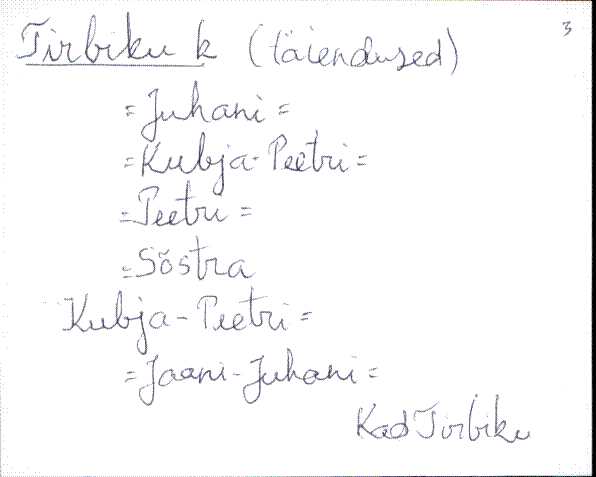 Tirbiku k (täiendused) 3
= Juhani =
= Kubja-Peetri =
= Peetri =
= Sõstra
Kubja-Peetri =
= Jaani-Juhani =
Kad Tirbiku